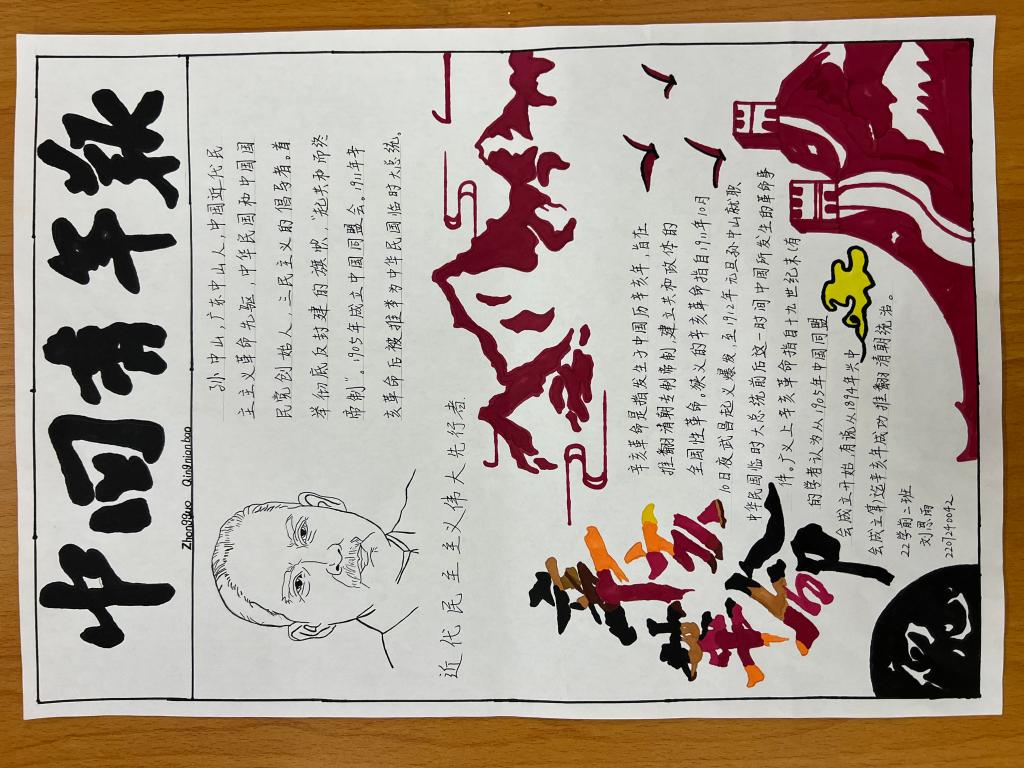 中国青年报
ZhongGuo QingNianbao
孙中山,广东中山人,中国近代民
主主义革命先驱,中华民国和中国国
民党创始人,三民主义的倡导者。首
举彻底反封建的旗帜,“起共和而终
帝制”。1905年成立中国同盟会。1911年辛
亥革命后被推举为中华民国临时大总统。
近代民主主义伟大先行者.
辛亥革命
辛亥革命是指发生于中国历辛亥年,旨在
推翻清朝专制帝制,建立共和政体的
全国性革命。狭义的辛亥革命指自1911年10月
10日夜武昌起义爆发,至1912年元旦孙中山就职
中华民国临时大总统前后这一时间中国所发生的革命事
件。广义上辛亥革命指自十九世纪末(有
的学者认为从1905年中国同盟
会成立开始,有说从1894年兴中
会成立算)迄辛亥年成功推翻清朝统治。
22学前二班
刘思雨
2201240042